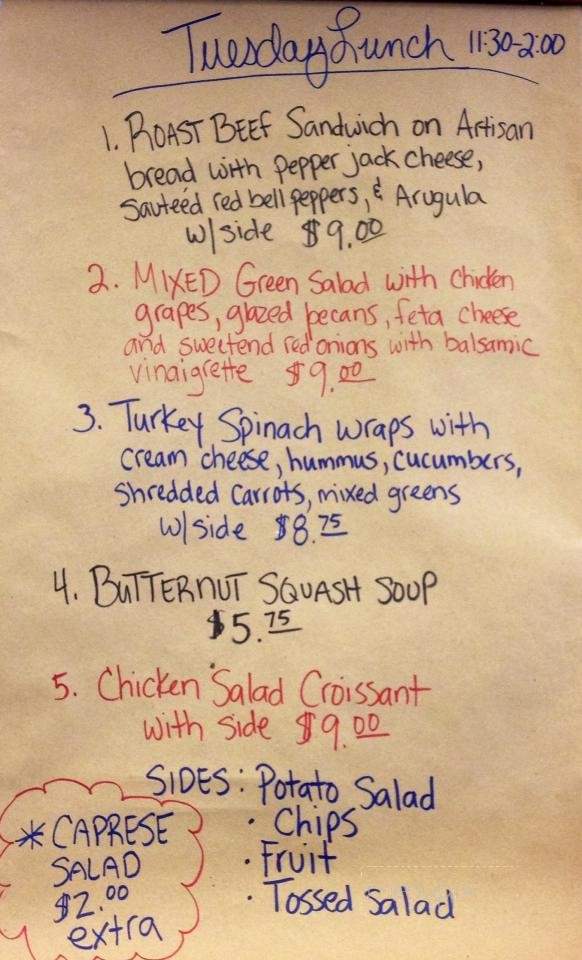 Tuesday Lunch 11:30-2:00
1. ROAST BEEF Sandwich on Artisan
bread with pepper jack cheese,
Sauteéd red bell peppers, & Arugula
w/side $9.00
2. MIXED Green Salad with Chicken
grapes, glazed pecans, feta cheese
and sweetend red onions with balsamic
vinaigrette $9.00
3. Turkey Spinach wraps with
cream cheese, hummus, cucumbers,
Shredded Carrots, mixed greens
w/side $8.75
4. BUTTERNUT SQUASH SOUP
$5.75
5. Chicken Salad Croissant
with side $9.00
SIDES: Potato Salad
· Chips
· Fruit
· Tossed Salad
* CAPRESE
SALAD
$2.00
extra